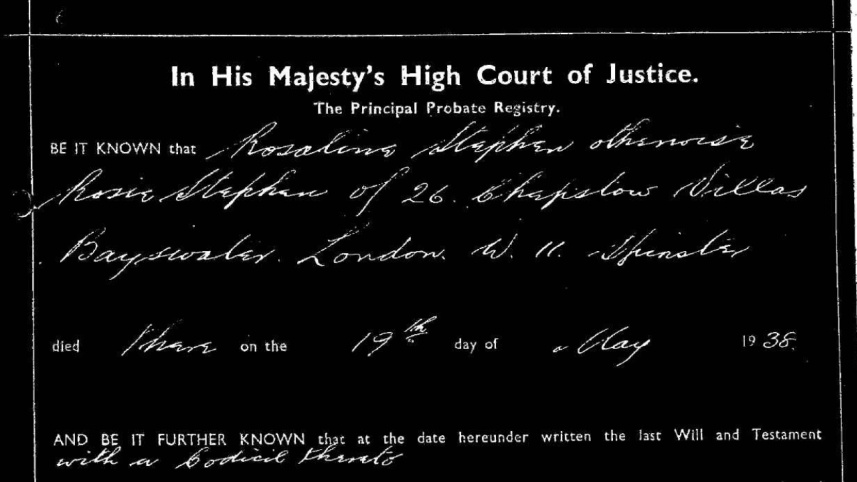 In His Majesty's High Court of Justice.
The Principal Probate Registry.
BE IT KNOWN that Rosaline Stephen otherwise
Rosie Stephen of 26. Chepstow Villas
Bayswater. London. W. 11. Spinster
died there on the 19th day of May 1938.
AND BE IT FURTHER KNOWN that at the date hereunder written the last Will and Testament
with a Codicil thereto